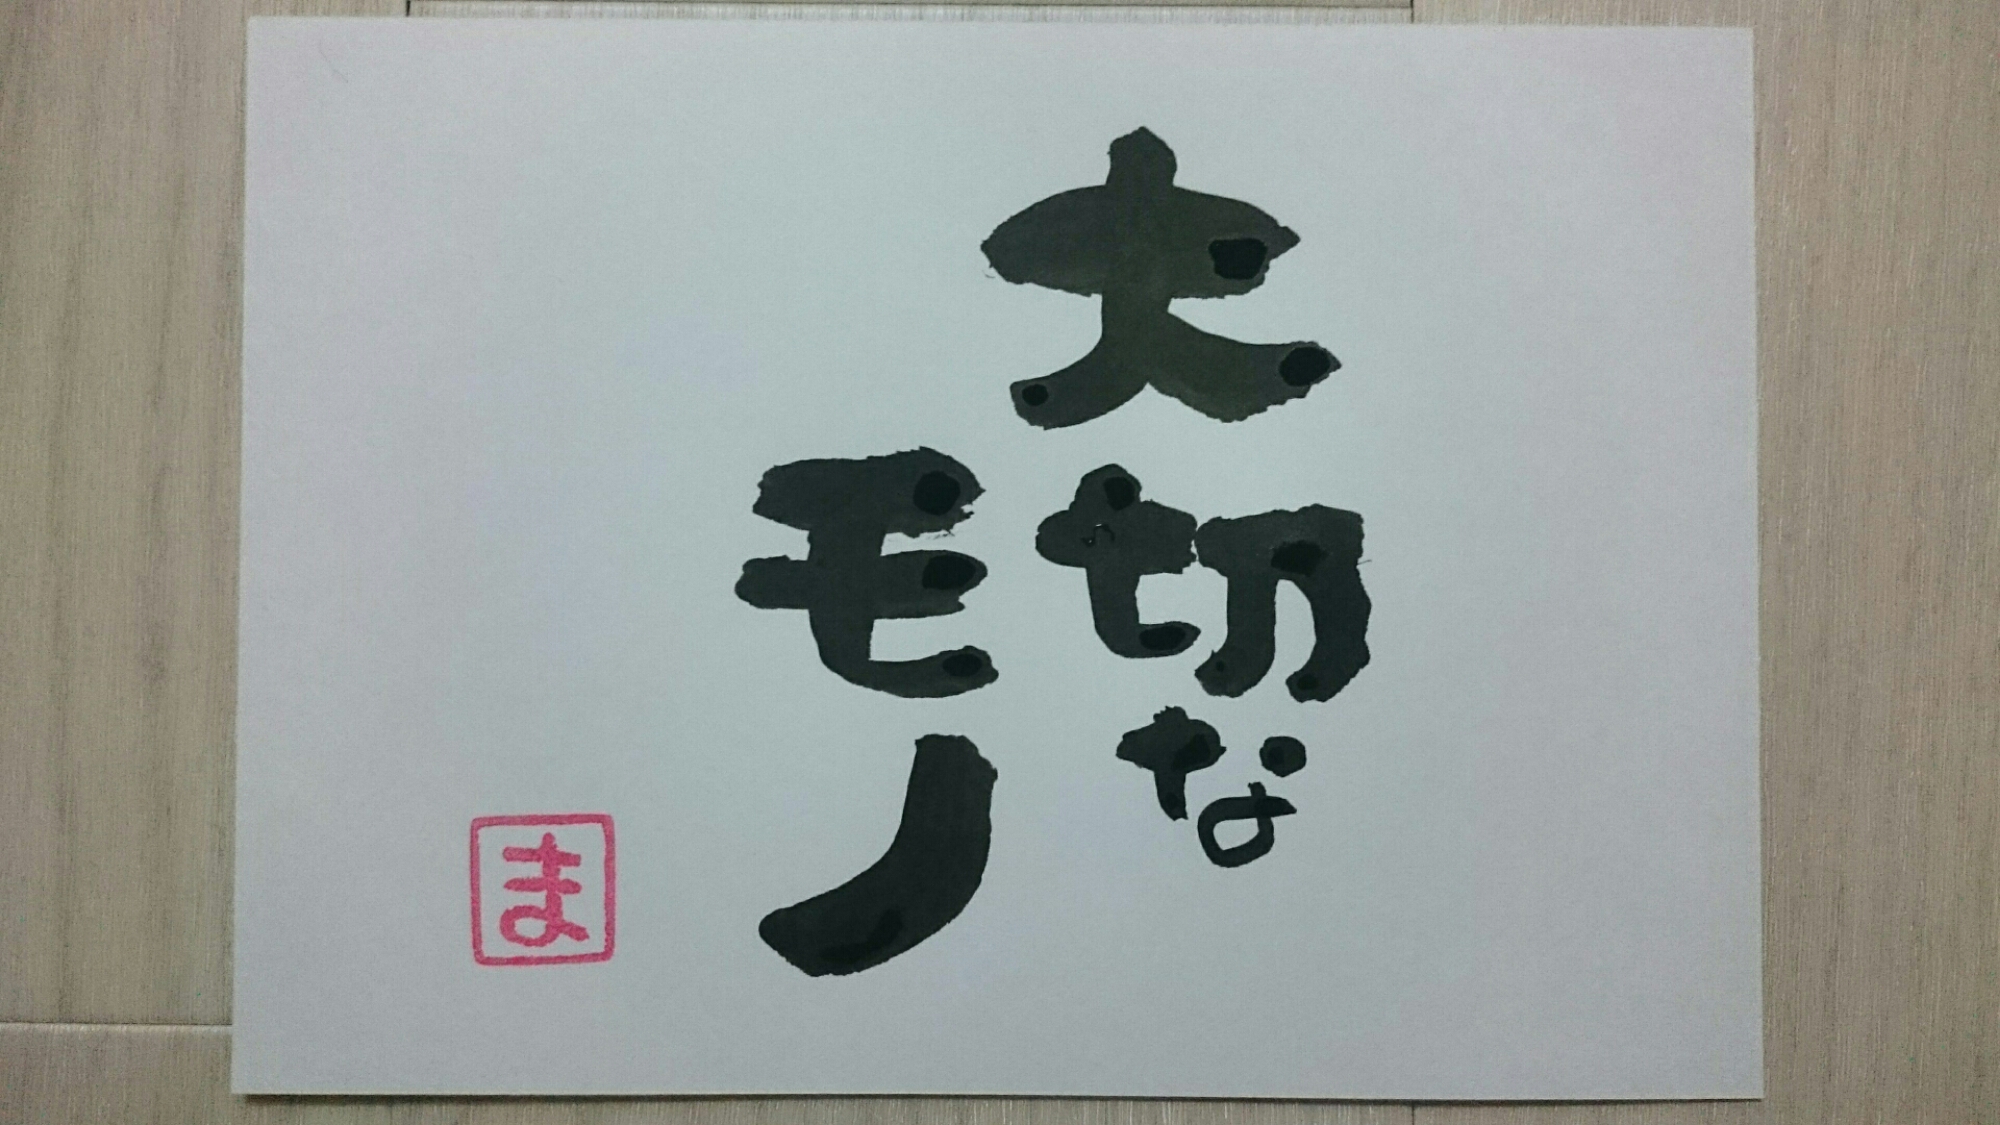 大切な
モノ
ま